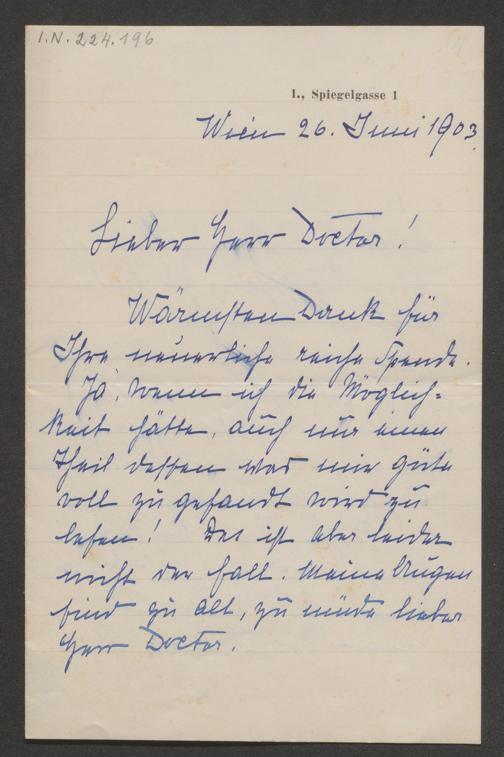 I.N. 224.196
I., Spiegelgasse 1
Wien 26. Juni 1903.
Lieber Herr Doctor!
Wärmsten Dank für
Ihre neuerliche reiche Spende.
Ja, wenn ich die Möglich-
keit hätte, auch nur einen
Theil dessen was mir güte
voll zu gesandt wird zu
lesen! Das ist aber leider
nicht der Fall. Meine Augen
sind zu alt, zu müde lieber
Herr Doctor.